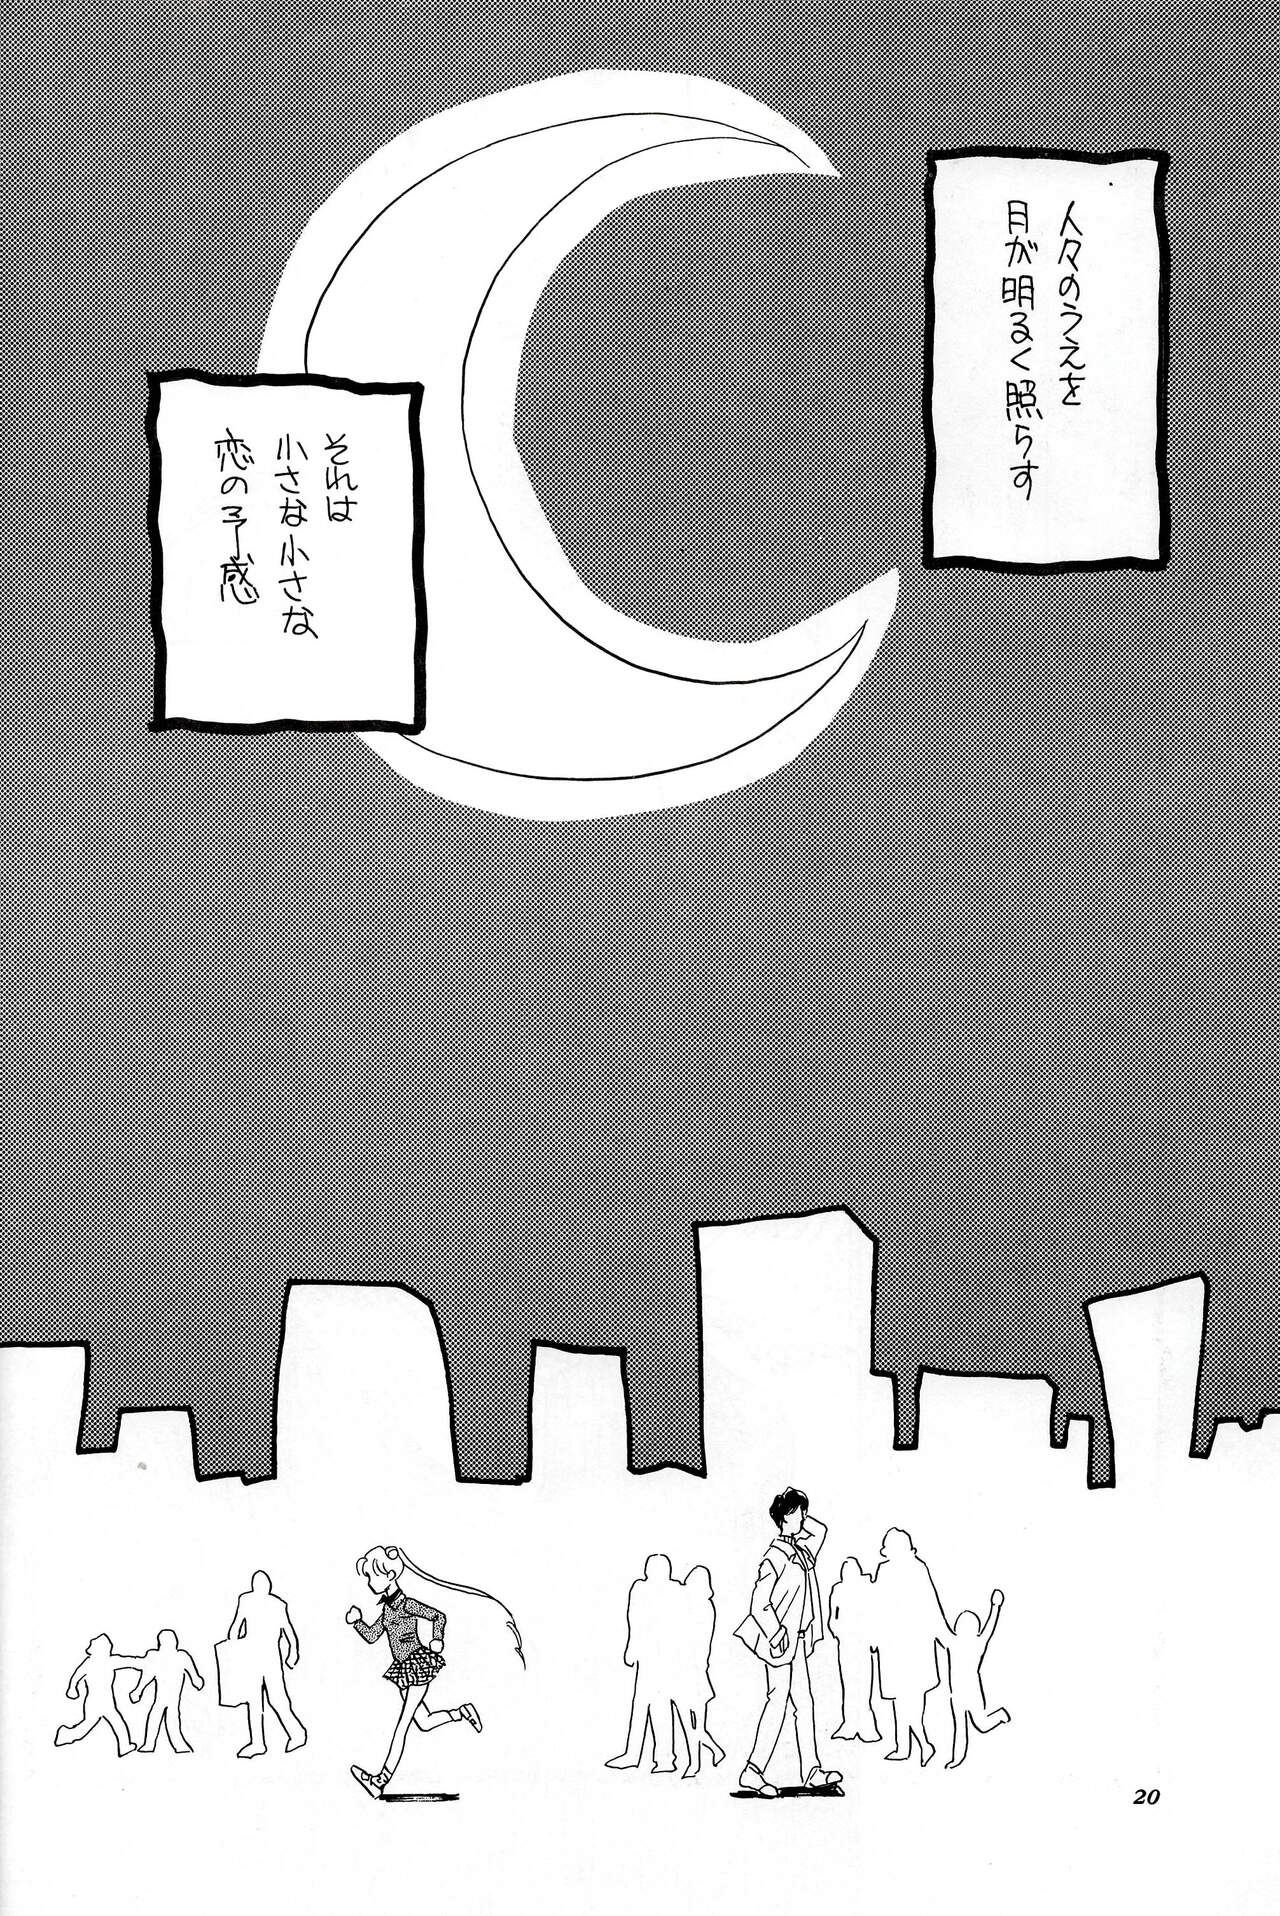 人々のうえを
月が明るく照らす
それは
小さな小さな
恋の予感
20